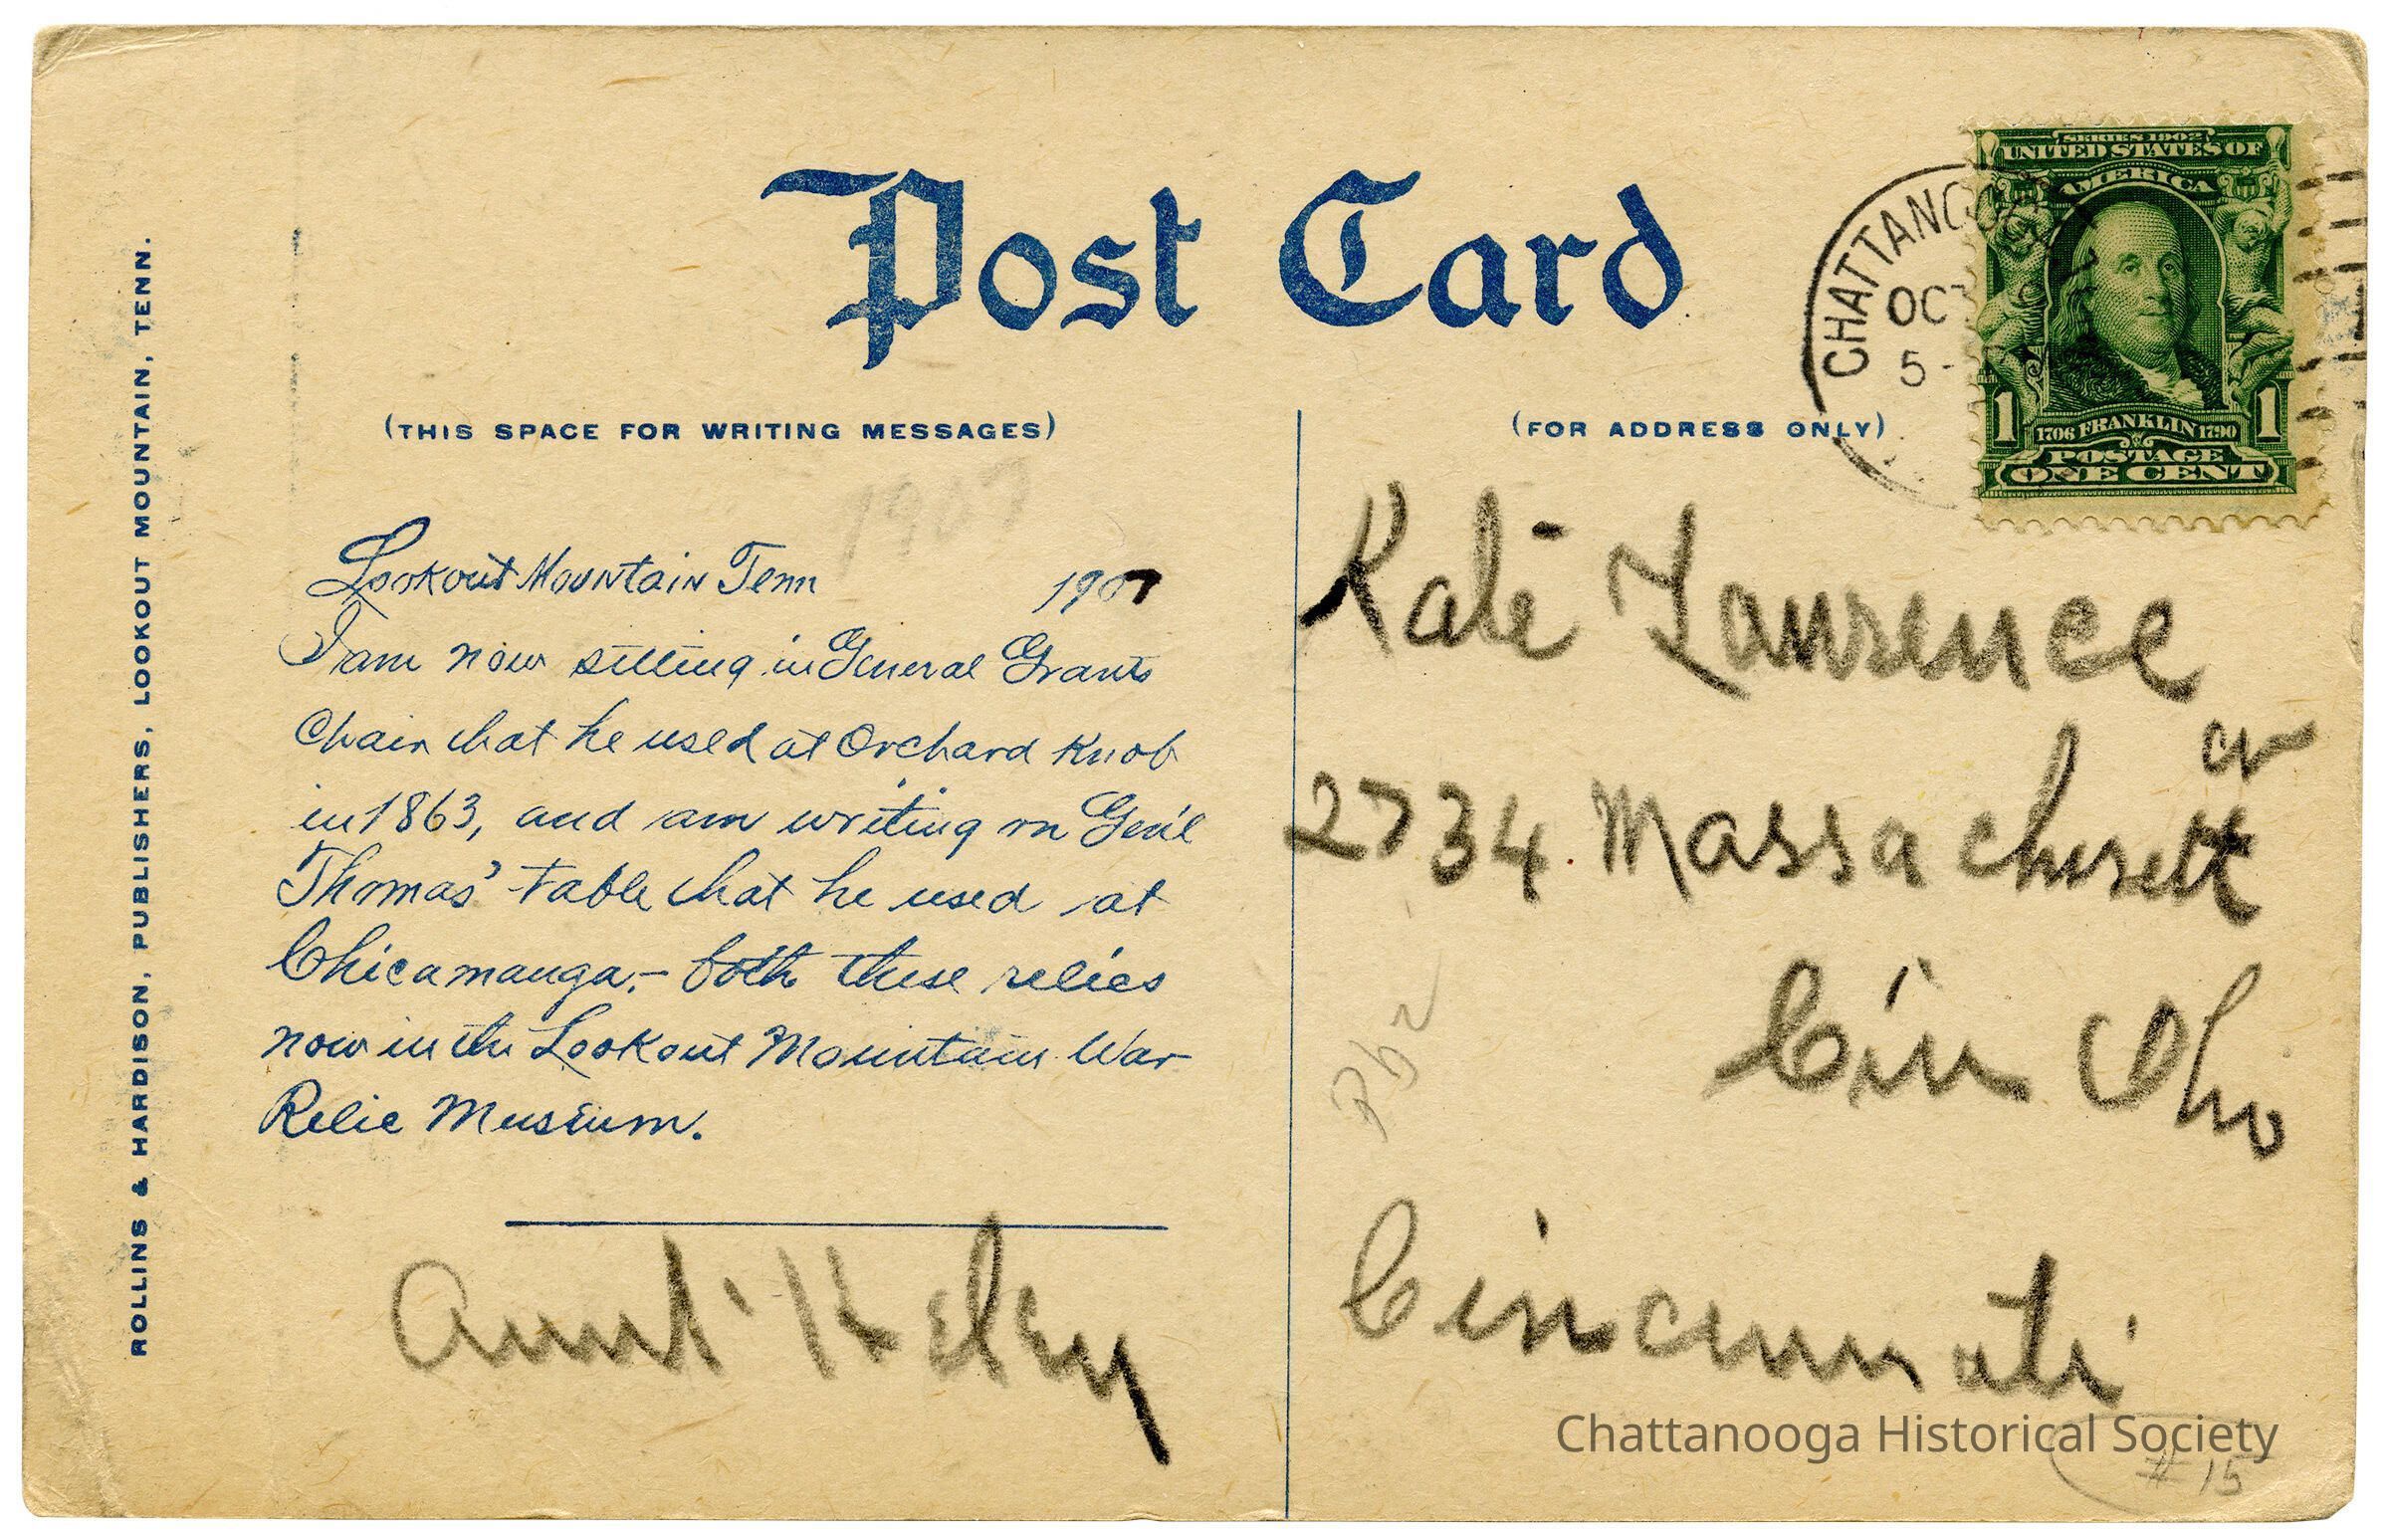 Post Card
(THIS SPACE FOR WRITING MESSAGES)
(FOR ADDRESS ONLY)
ROLLINS & HARDISON, PUBLISHERS, LOOKOUT MOUNTAIN, TENN.
1907
Lookout Mountain Tenn 1907
I am now sitting in General Grants
Chair that he used at Orchard Knob
in 1863, and am writing on Gen'l
Thomas' table that he used at
Chicamauga,- both these relics
now in the Lookout Mountain War
Relic Museum.
Aunt
CHATTANOOGA
OCT
5-
SERIES 1902
UNITED STATES OF
AMERICA
1 1
1706 FRANKLIN 1790
POSTAGE
ONE CENT
Kate Lawrence
2734 Massachusett
Cin Oho
Cincinnati
Chattanooga Historical Society
# 15